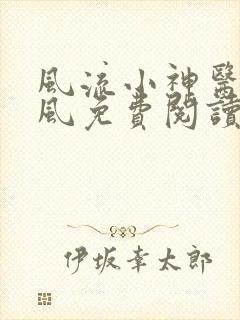 風流小神醫
風免費閱讀
伊坂幸太郎